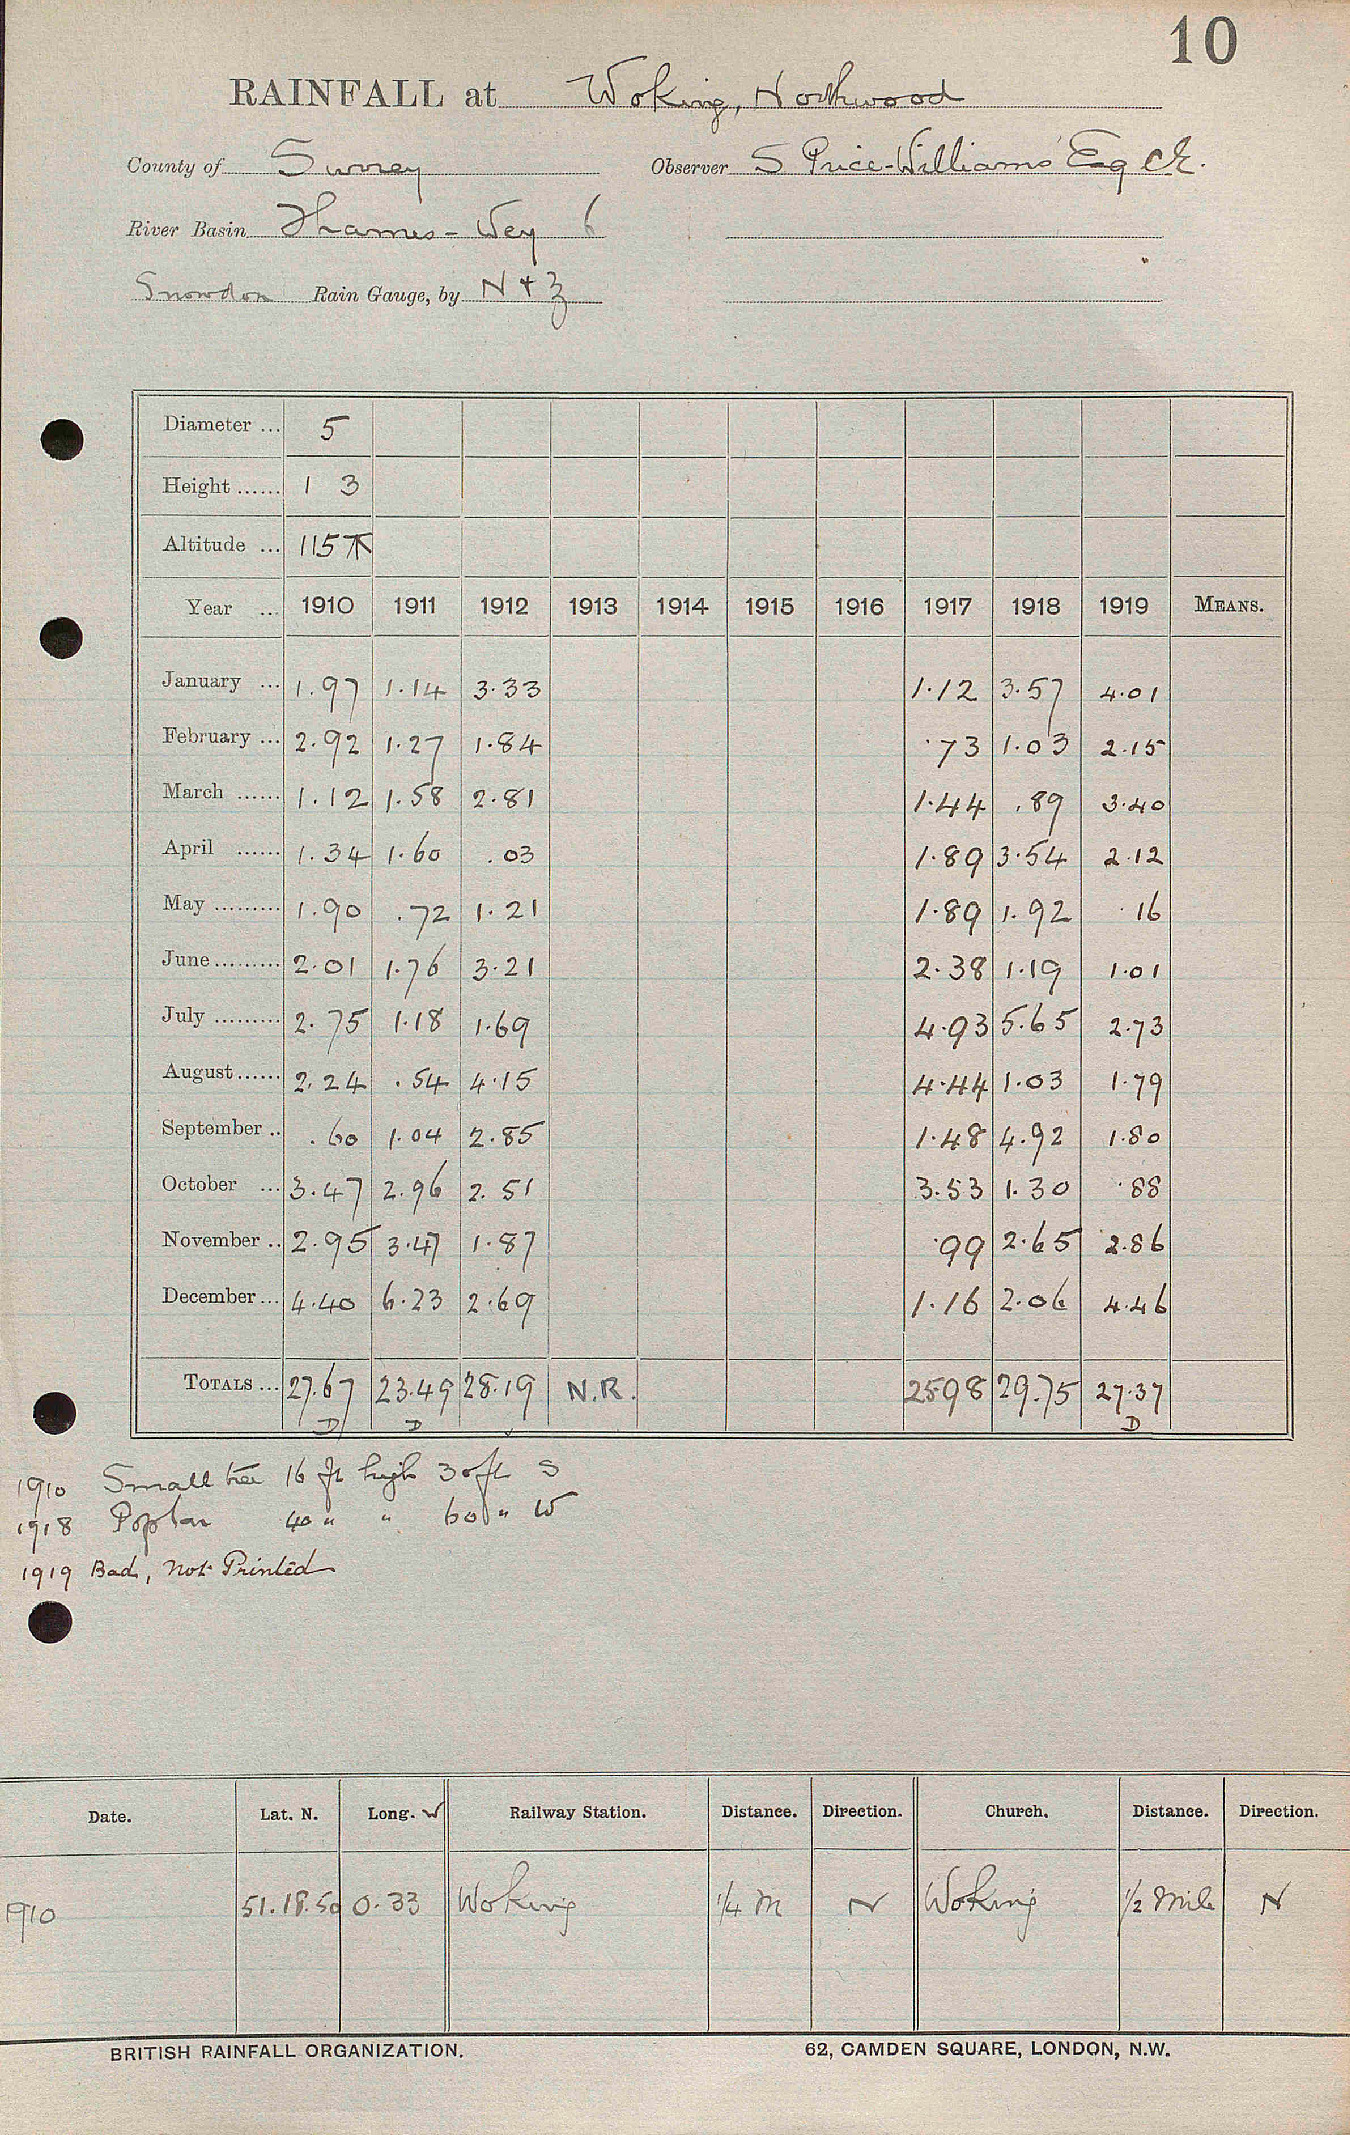 10
RAINFALL at Woking, Northwood
County of Surrey Observer S Price-Williams Esq CE.
River Basin Thames - Wey 6
Snowdon Rain Gauge, by N + Z
Diameter ... 5
Height ...... 1 3
Altitude ... 115
Year ... 1910 1911 1912 1913 1914 1915 1916 1917 1918 1919 MEANS.
January ... 1.97 1.14 3.33 1.12 3.57 4.01
February ... 2.92 1.27 1.84 .73 1.03 2.15
March ...... 1.12 1.58 2.81 1.44 .89 3.40
April ...... 1.34 1.60 .03 1.89 3.54 2.12
May ......... 1.90 .72 1.21 1.89 1.92 .16
June ......... 2.01 1.76 3.21 2.38 1.19 1.01
July ......... 2.75 1.18 1.69 4.93 5.65 2.73
August ...... 2.24 .54 4.15 4.44 1.03 1.79
September .. .60 1.04 2.85 1.48 4.92 1.80
October ... 3.47 2.96 2.51 3.53 1.30 .88
November .. 2.95 3.47 1.87 .99 2.65 2.86
December ... 4.40 6.23 2.69 1.16 2.06 4.46
TOTALS ... 27.67 23.49 28.19 N.R. 25.98 29.75 27.37
D D D
1910 Small tree 16 ft high 30 ft S
1918 Poplar 40 " " 60 " W
1919 Bad, Not Printed
Date. Lat. N. Long. W Railway Station. Distance. Direction. Church. Distance. Direction.
1910 51.18.50 0.33 Woking 1/4 m N Woking 1/2 Mile N
BRITISH RAINFALL ORGANIZATION. 62, CAMDEN SQUARE, LONDON, N.W.